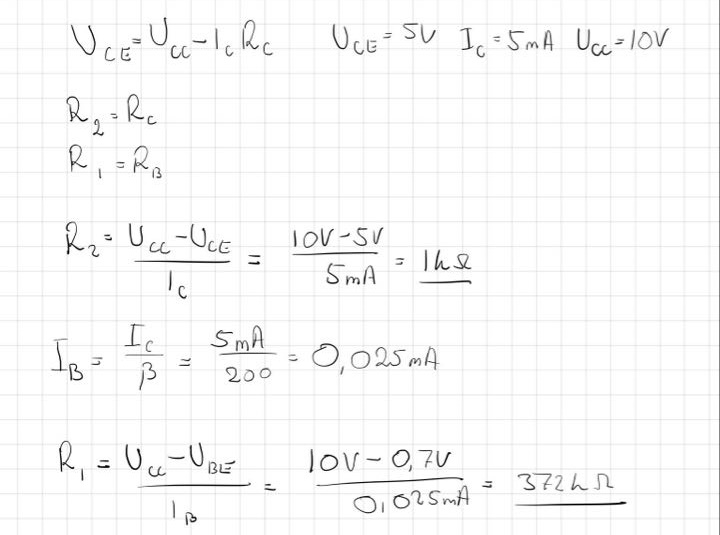 U_CE = U_CC - I_C R_C   U_CE = 5V   I_C = 5mA   U_CC = 10V
R_2 = R_C
R_1 = R_B
R_2 = (U_CC - U_CE) / I_C = (10V - 5V) / 5mA = 1kΩ
I_B = I_C / β = 5mA / 200 = 0,025mA
R_1 = (U_CC - U_BE) / I_B = (10V - 0,7V) / 0,025mA = 372kΩ